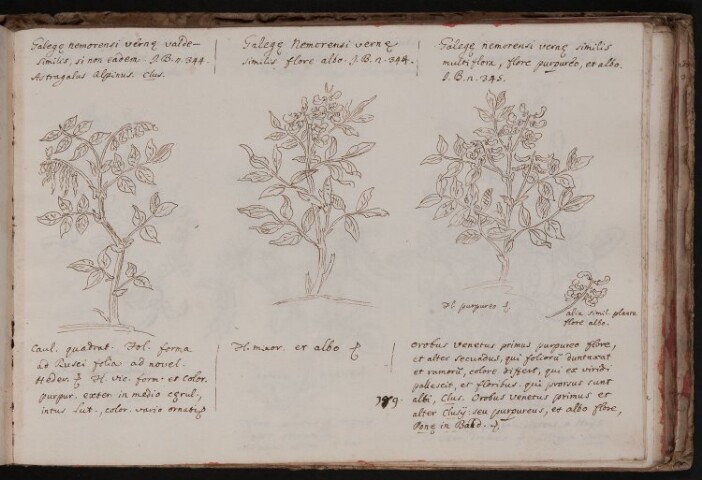 Galegę nemorensi vernę valde-
similis, si non eadem. J.B.n.344.
Astragalus Alpinus. Clus.
Galegę Nemorensi vernę
similis flore albo. J.B.n.344.
Galegę nemorensi vernę similis
multiflora, flore purpureo, et albo.
J.B.n.345.
Fl. purpureo
alia simil. planta
flore albo.
Caul. quadrat. Fol. forma
ad Rusci folia ad novel.
Heder. Fl. vic. form. et color.
purpur. exter. in medio cęrul.,
intus Lut., color. vario ornatis
Fl. minor. et albo
179.
Orobus Venetus primus purpureo flore,
et alter secundus, qui foliorū duntaxat
et ramorū, colore differt, qui ex viridi
pallescit, et floribus. qui prorsus sunt
albi, Clus. Orobus venetus primus et
alter Clusÿ seu purpureus, et albo flore,
Ponę in Bald.